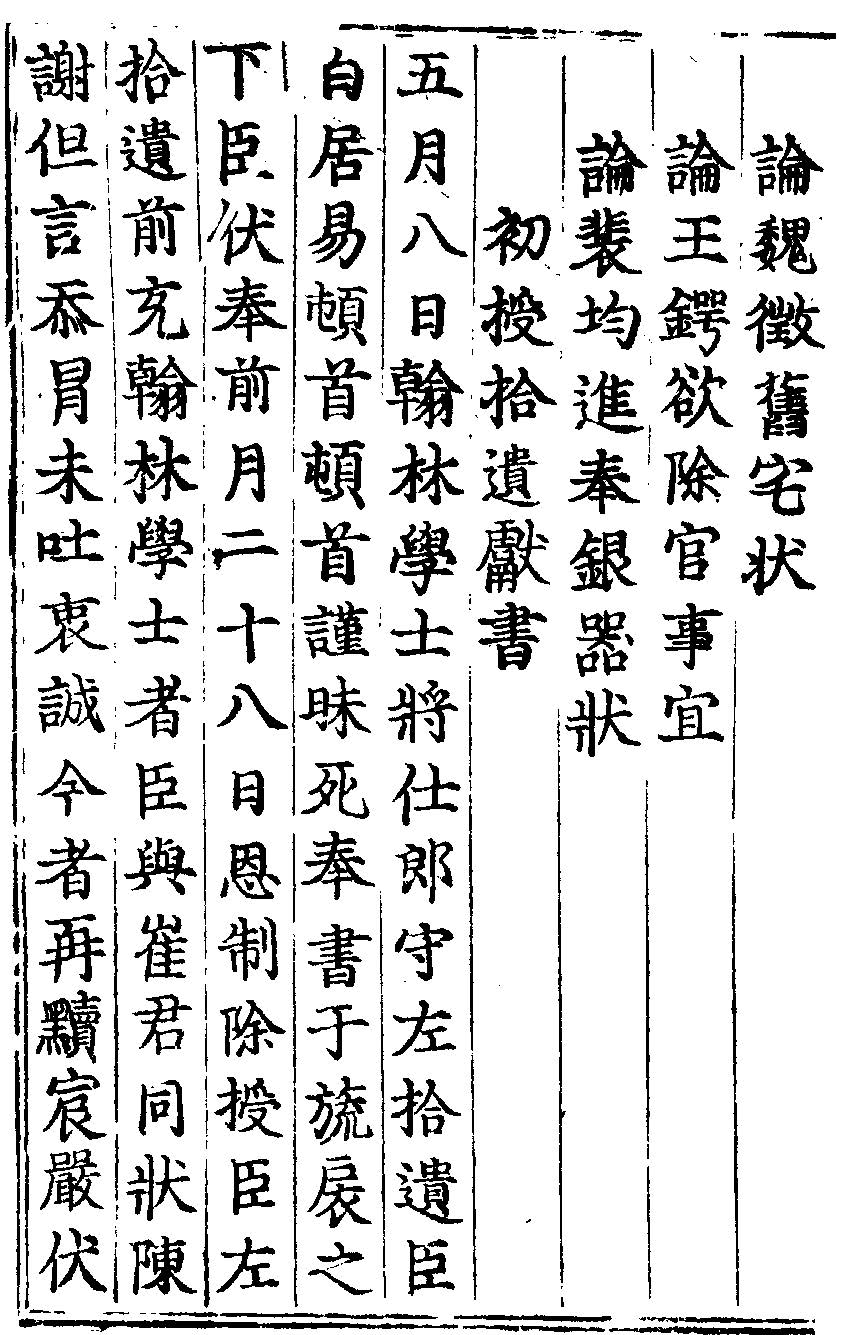 論魏徵舊宅状
論王鍔欲除官事宜
論裴均進奉銀器狀
初授拾遺獻書
五月八日翰林學士將仕郎守左拾遺臣
白居易頓首頓首謹昧死奉書于旒扆之
下臣伏奉前月二十八日恩制除授臣左
拾遺前充翰林學士者臣與崔君同狀陳
謝但言忝冒未吐衷誠今者再黷宸嚴伏